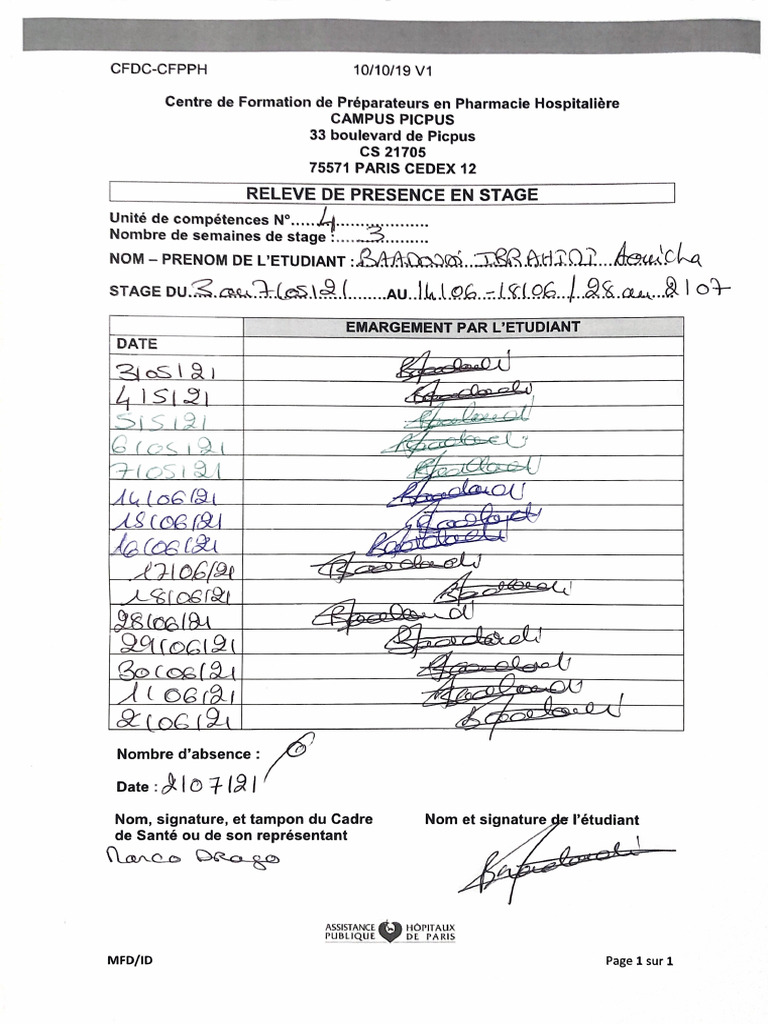 CFDC-CFPPH 10/10/19 V1
Centre de Formation de Préparateurs en Pharmacie Hospitalière
CAMPUS PICPUS
33 boulevard de Picpus
CS 21705
75571 PARIS CEDEX 12
RELEVE DE PRESENCE EN STAGE
Unité de compétences N°......4..................
Nombre de semaines de stage :......3..........
NOM – PRENOM DE L'ETUDIANT : IBRAHIM Aouicha
STAGE DU..3 au 7/05/21........AU..14/06-18/06/28 au 2/07
EMARGEMENT PAR L'ETUDIANT
DATE
3/05/21
4/5/21
5/5/21
6/05/21
7/05/21
14/06/21
15/06/21
16/06/21
17/06/21
18/06/21
28/06/21
29/06/21
30/06/21
1/06/21
2/06/21
Nombre d'absence : 0
Date : 2/07/21
Nom, signature, et tampon du Cadre Nom et signature de l'étudiant
de Santé ou de son représentant
Marco Drago
ASSISTANCE HÔPITAUX
PUBLIQUE DE PARIS
MFD/ID Page 1 sur 1